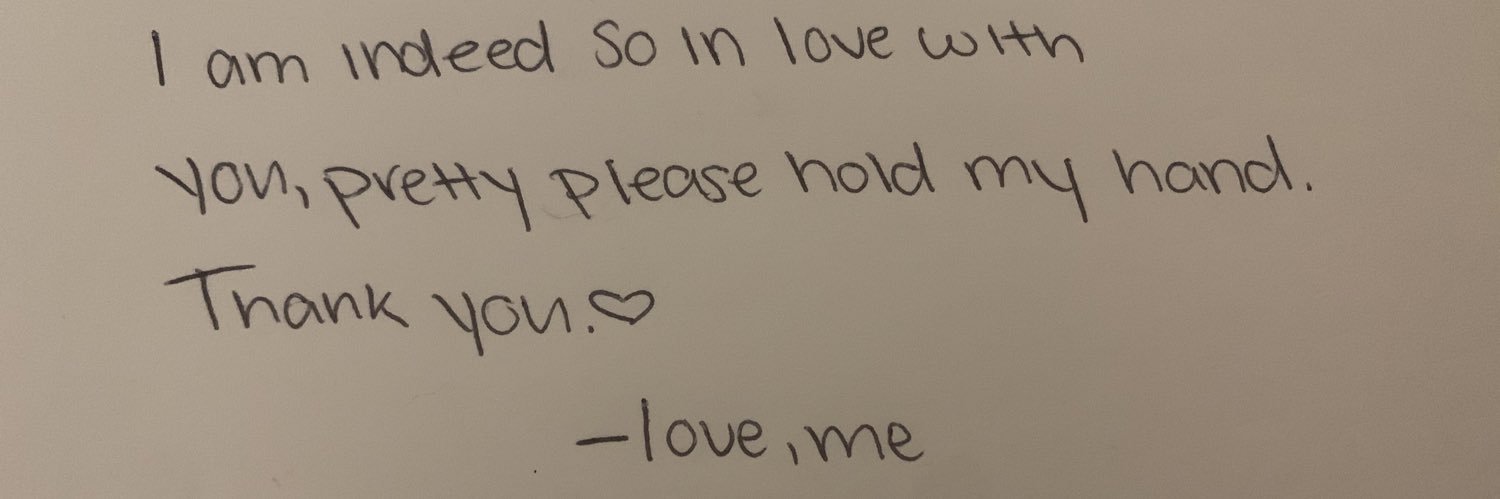 I am indeed so in love with
you, pretty please hold my hand.
Thank you.♡
-love, me